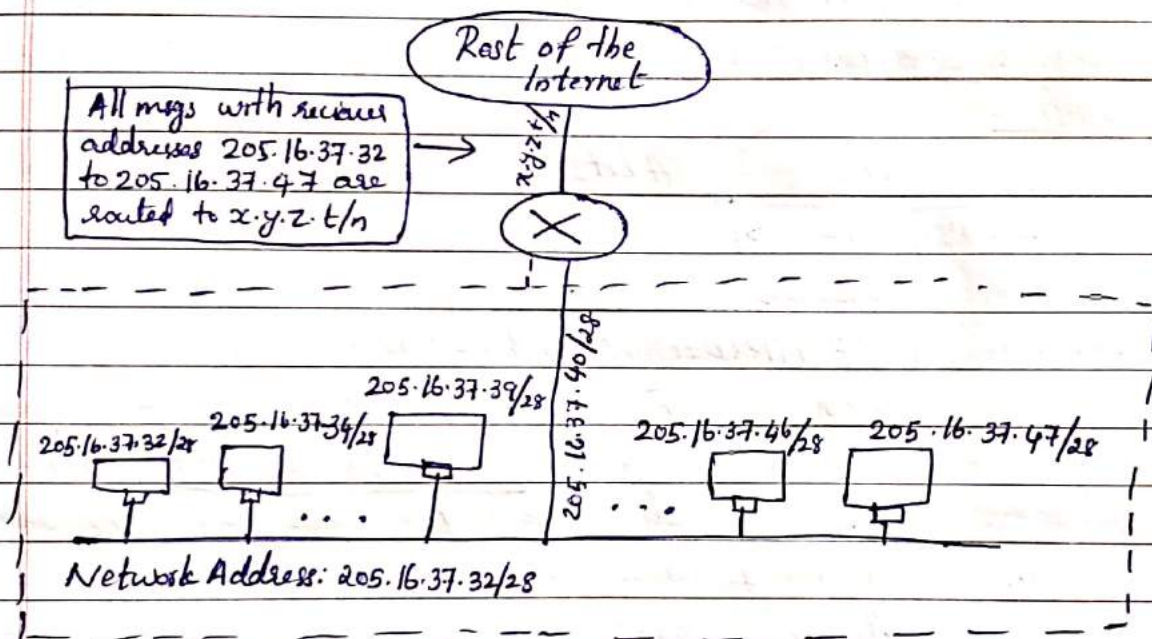 Rest of the
Internet
All msgs with reciever
addresses 205.16.37.32
to 205.16.37.47 are
routed to x.y.z.t/n
x.y.z.t/n
205.16.37.40/28
205.16.37.32/28
205.16.37.34/28
205.16.37.39/28
205.16.37.46/28
205.16.37.47/28
. . . .
. . .
Network Address: 205.16.37.32/28